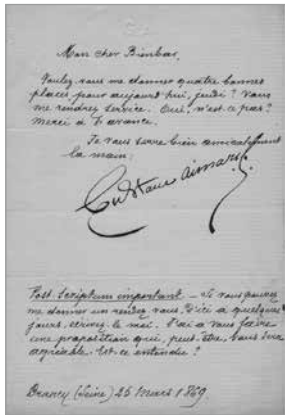 Mon cher Bienbar,
Voulez vous me donner quatre bonnes
places, pour aujourd'hui, jeudi ? Vous
me rendrez service. Oui, n'est ce pas ?
Merci à l'avance.
Je vous serre bien amicalement
la main :
Gustave Aimard
Post. Scriptum important — Si vous pouvez
me donner un rendez vous, d'ici à quelques
jours, écrivez le moi. J'ai à vous faire
une proposition qui, peut-être, vous sera
agréable. Est-ce entendu ?
(Seine) 26 mars 1869.